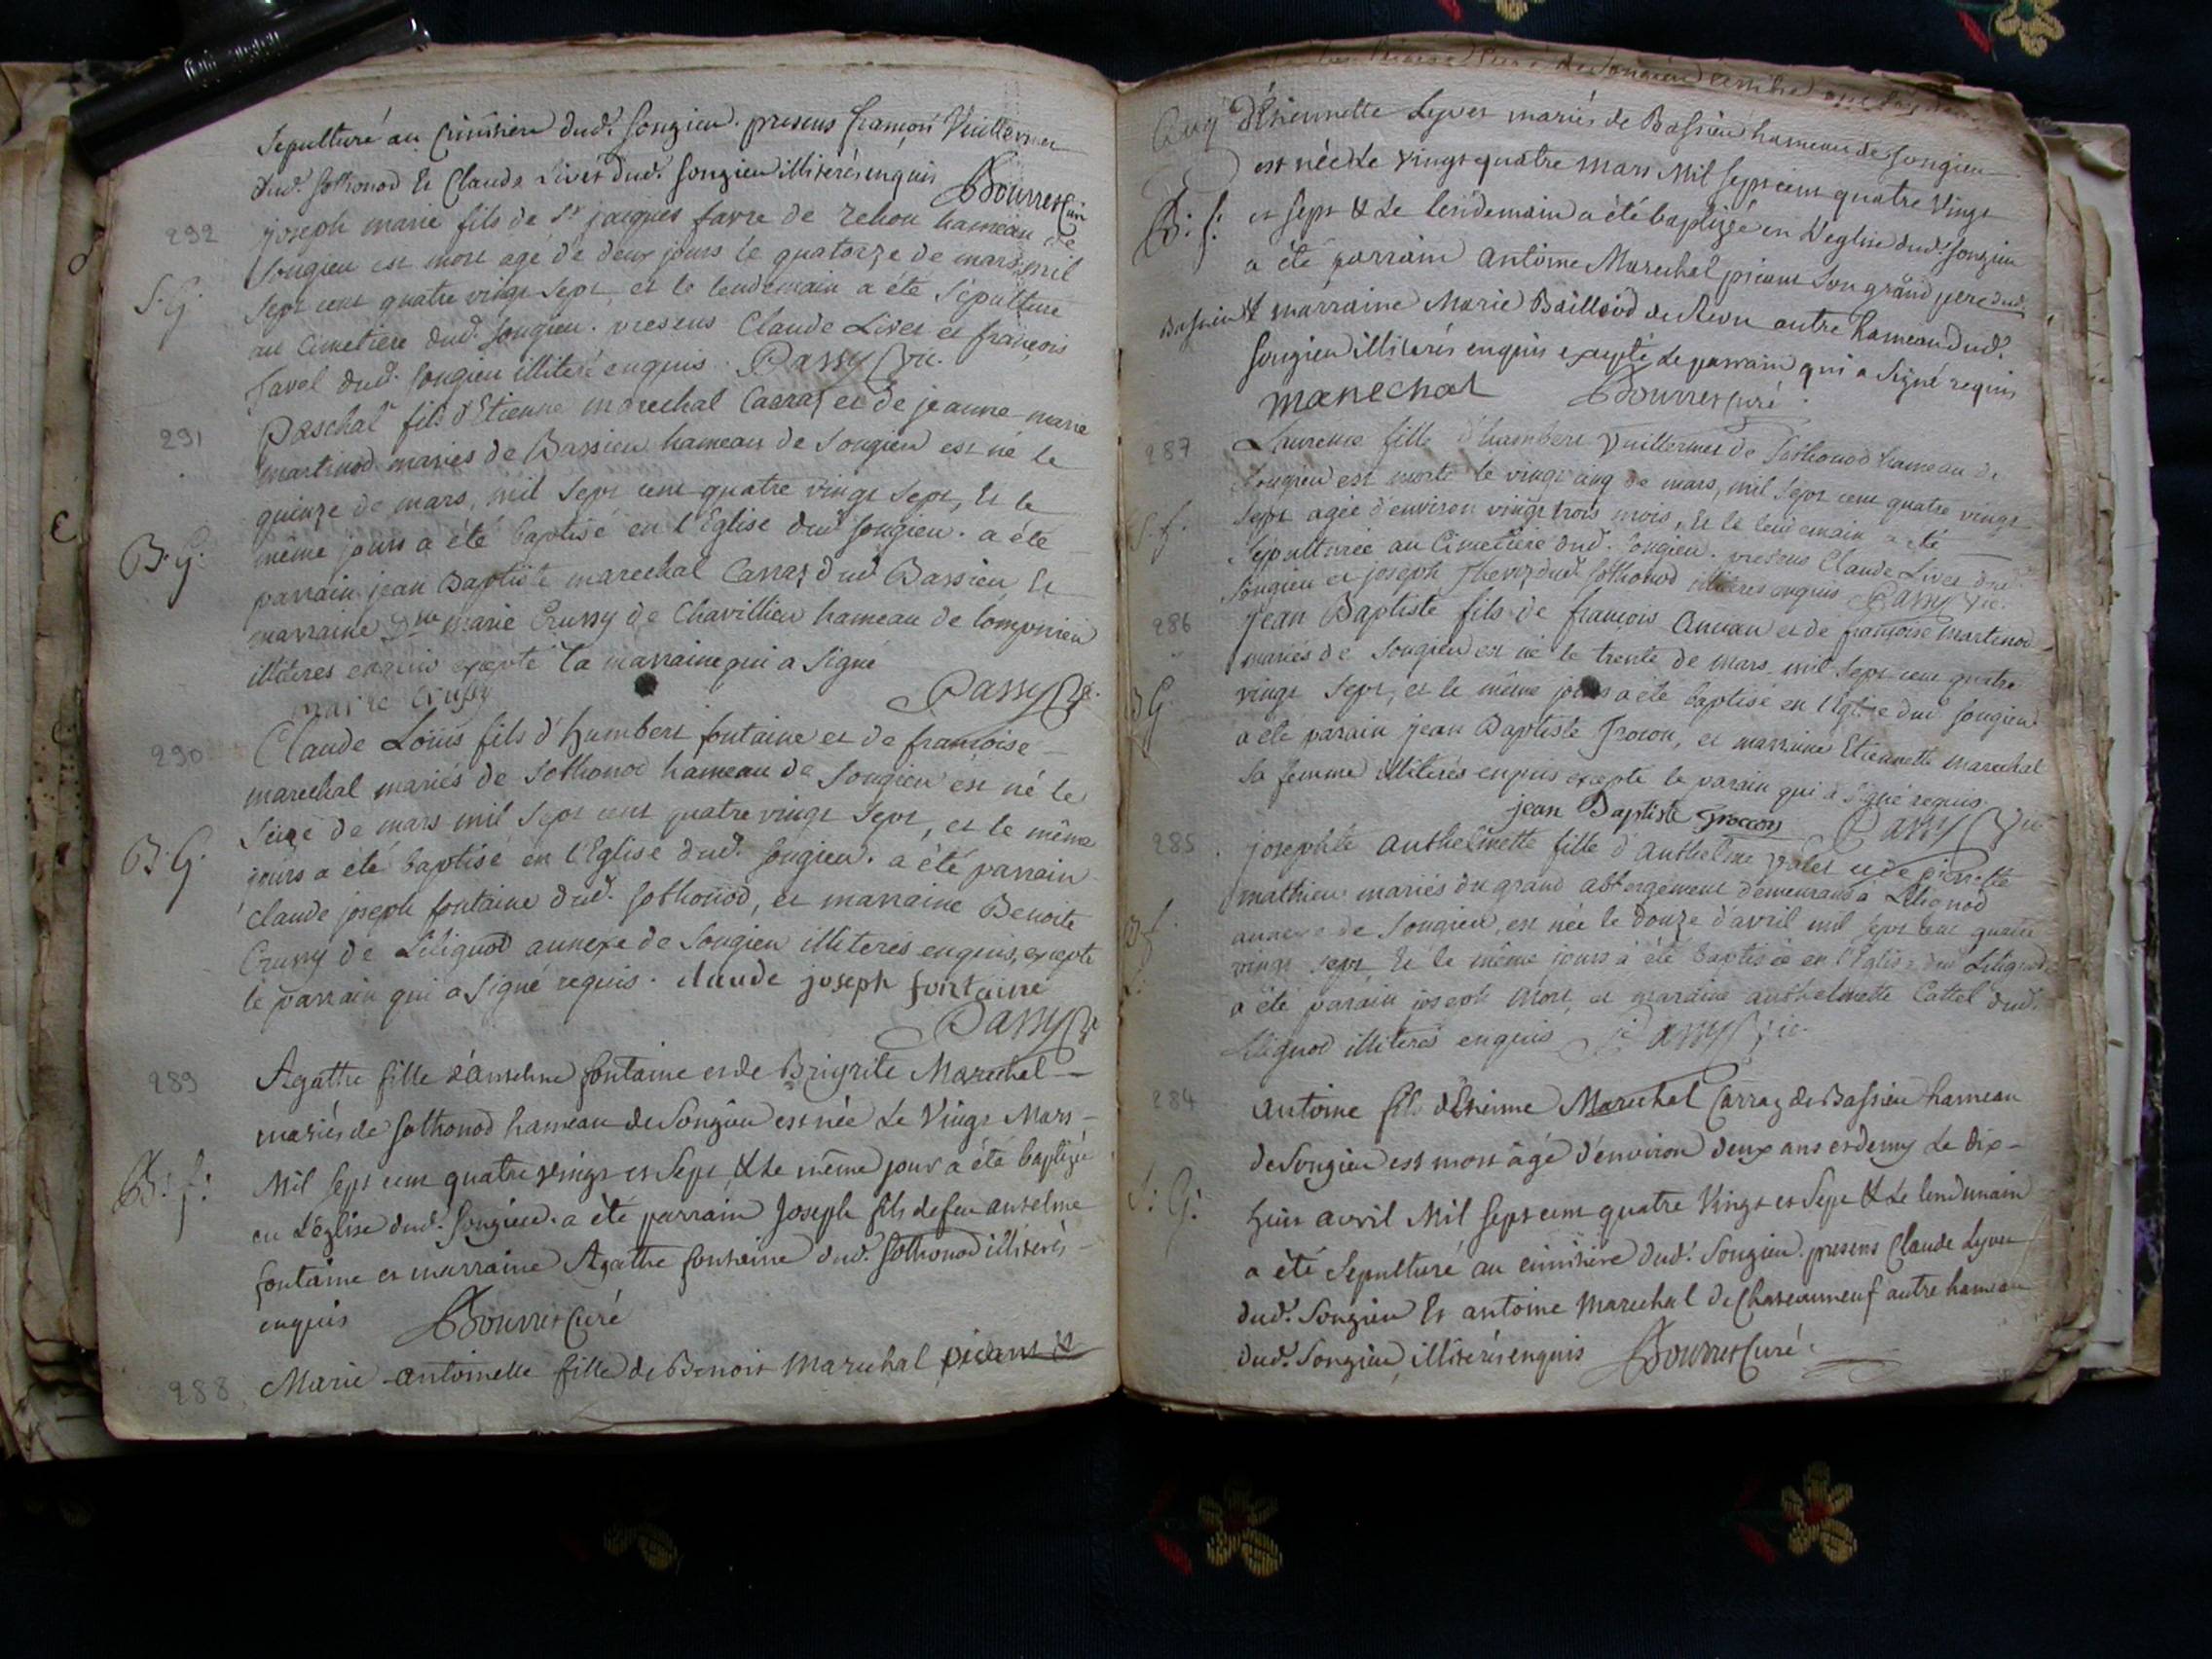 sepulturé au cimitiere dud. songieu. presens françois Vuillermet
dud. sothonod et Claude Livet dud. songieu illiterés enquis Bourret Curé
292 joseph marie fils de Sr jacques favre de rehou hameau de
songieu est mort agé de deux jours le quatorze de mars mil
S. G. sept cent quatre vingt sept, et le lendemain a été sépulturé
au cimetiere dud. songieu. presens Claude Livet et françois
favel dud. songieu illiteré enquis. Passy Vic.
291 Paschal fils d'Etienne marechal Carraz et de jeanne marie
martinod mariés de Bassieu hameau de songieu est né le
quinze de mars, mil sept cent quatre vingt sept, Et le
B. G. même jours a été baptisé en l'Eglise dud. songieu. a été
parrain jean Baptiste marechal Carraz dud. Bassieu, Et
marraine Dlle marie Crussy de Chavillieu hameau de lompnieu
illiteres enquis excepté la marraine qui a signé
marie Crussy Passy V.
290 Claude Louis fils d'humbert fontaine et de francoise
marechal mariés de sothonod hameau de songieu est né le
seize de mars mil sept cent quatre vingt sept, et le même
B. G. jours a été baptisé en l'Eglise dud. songieu. a été parrain
claude joseph fontaine dud. sothonod, et marraine Benoite
Crussy de Lilignod annexe de songieu illiterés enquis, excepte
le parrain qui a signé requis. claude joseph fontaine
Passy V.
289 Agathe fille d'anselme fontaine et de Brigite Marechal
mariés de sothonod hameau de songieu est née Le Vingt Mars
B: f: Mil sept cent quatre vingt et sept & Le même jour a été baptizée
en L'eglise dud. songieu. a été parrain Joseph fils de feu anselme
fontaine et marraine Agathe fontaine dud. sothonod illiterés
enquis Bourret Curé
288 Marie antoinette fille de Benoit Marechal picant &
d'Etiennette Lyvet mariés de Bassieu hameau de songieu
est née Le vingt quatre Mars Mil sept cent quatre vingt
B: f: et sept & Le lendemain a été baptizée en L'eglise dud. songieu
a été parrain antoine Marechal picant son grand pere dud.
Bassieu & marraine Marie Bailliod autre hameau dud.
songieu illiterés enquis excepté Le parrain qui a signé requis
marechal Bourret curé
287 Laurence fille d'humbert Vuillermet de sothonod hameau de
songieu est morte le vingt cinq de mars, mil sept cent quatre vingt
S. f. sept agée d'environ vingt trois mois, Et le lendemain a été
sépulturée au Cimetiere dud. songieu. presens Claude Livet dud.
songieu et joseph dud. sothonod illiteres enquis Passy Vic.
286 jean Baptiste fils de françois et de françoise martinod
mariés de songieu est né le trente de mars mil sept cent quatre
B G vingt sept, et le même jours a été baptisé en l'Eglise dud. songieu
a été parain jean Baptiste Grocon, et marraine Etiennette marechal
sa femme illiterés enquis excepté le parain qui a signé requis.
jean Baptiste Grocon Passy Vic
285 josephte anthelmette fille d'anthelme valet et de pierrette
mathieu mariés du grand abbergement demeurans à Lilignod
B f. annexe de songieu, est née le douze d'avril mil sept cent quatre
vingt sept Et le même jours a été baptisée en l'Eglise dud. Lilignod
a été parain joseph More, et maraine anthelmette Cattel dud.
Lilignod illiterés enquis Passy Vic.
284 antoine fils d'Etienne Marechal Carraz de Bassieu hameau
de songieu est mort âgé d'environ deux ans et demy Le dix-
S: G: huit avril Mil sept cent quatre Vingt et sept & Le lendemain
a été sepulturé au cimitière dud. songieu. presens Claude Lyvet
dud. songieu Et antoine Marechal de Chateauneuf autre hameau
dud. songieu, illiterés enquis Bourret Curé.